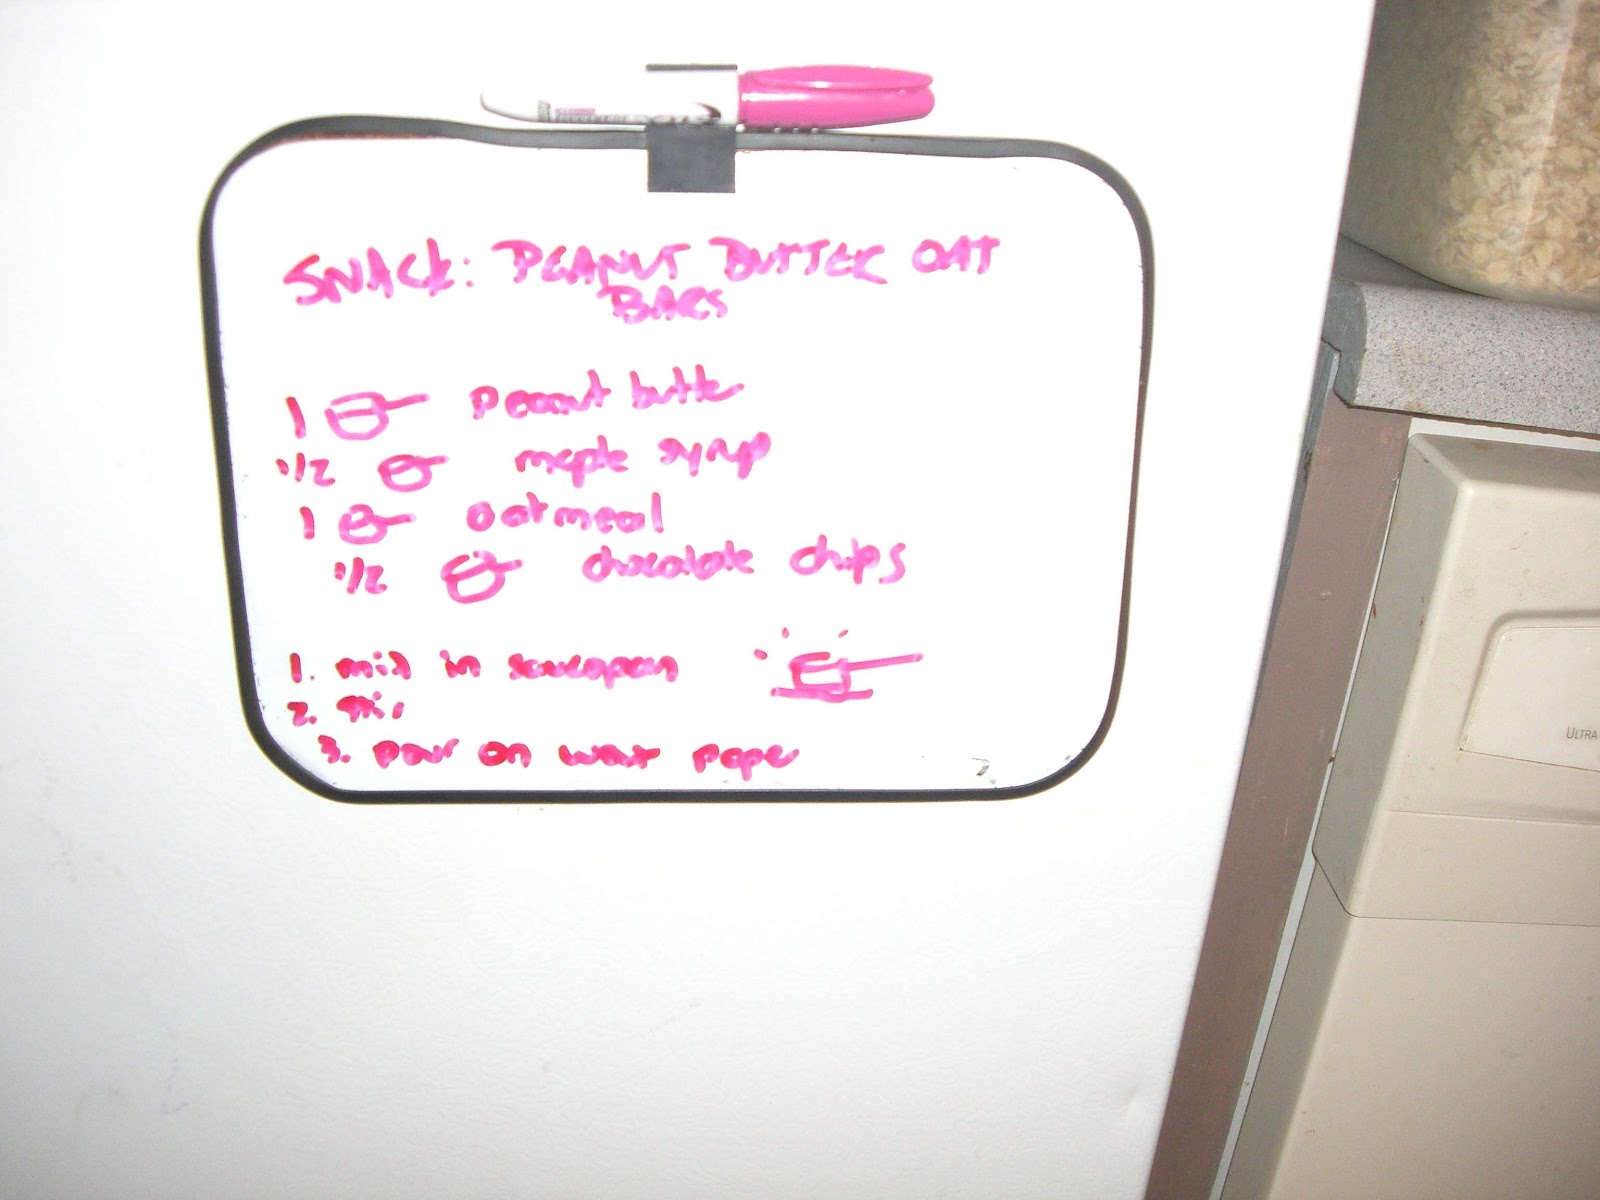 SNACK: PEANUT BUTTER OAT
BARS
1 peanut butter
1/2 maple syrup
1 oatmeal
1/2 chocolate chips
1. mix in saucepan
2. stir
3. pour on wax paper
ULTRA